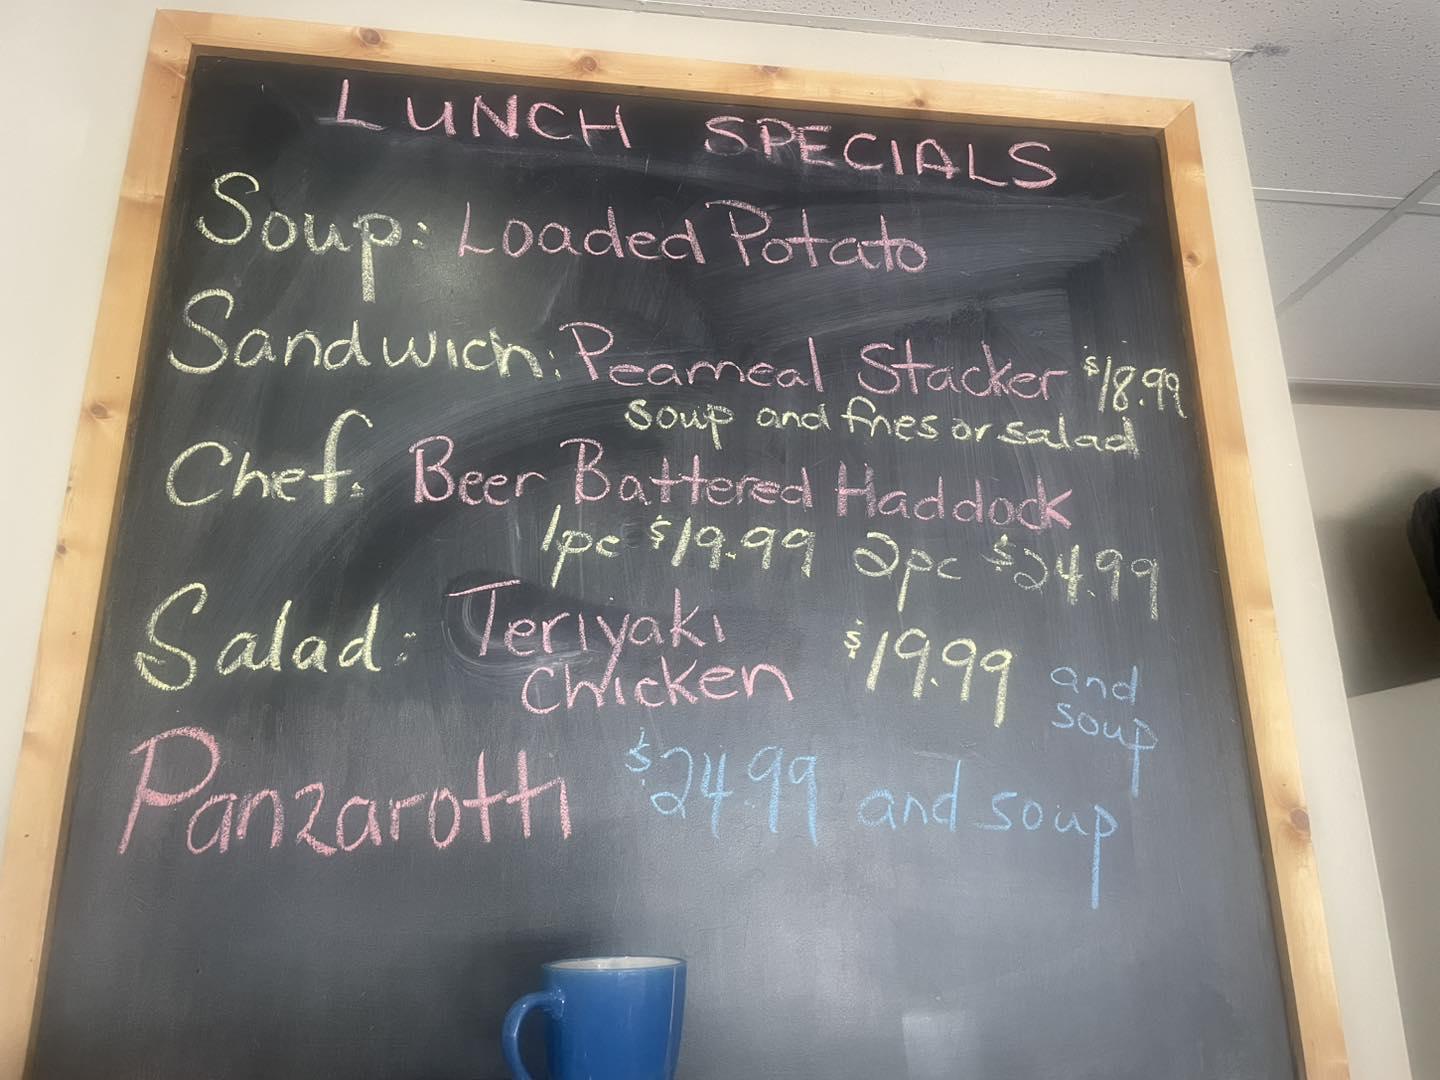 LUNCH SPECIALS
Soup: Loaded Potato
Sandwich: Peameal Stacker $18.99
soup and fries or salad
Chef: Beer Battered Haddock
1pc $19.99 2pc $24.99
Salad: Teriyaki Chicken $19.99 and soup
Panzarotti $24.99 and soup